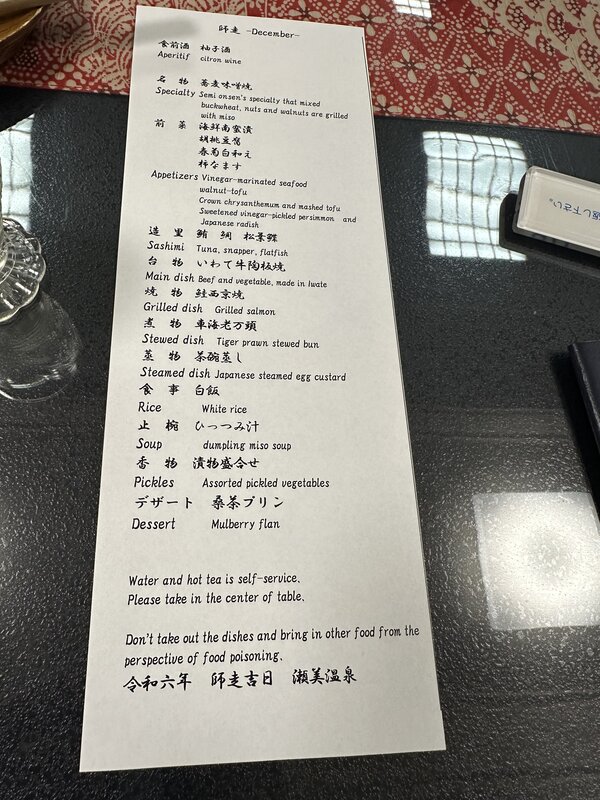 師走 -December-
食前酒 柚子酒
Aperitif citron wine
名 物 蕎麦味噌焼
Specialty Semi onsen's specialty that mixed
buckwheat, nuts and walnuts are grilled
with miso
前 菜 海鮮南蛮漬
胡桃豆腐
春菊白和え
柿なます
Appetizers Vinegar-marinated seafood
walnut-tofu
Crown chrysanthemum and mashed tofu
Sweetened vinegar-pickled persimmon and
Japanese radish
造 里 鮪 鯛 松葉鰈
Sashimi Tuna, snapper, flatfish
台 物 いわて牛陶板焼
Main dish Beef and vegetable, made in Iwate
焼 物 鮭西京焼
Grilled dish Grilled salmon
煮 物 車海老万頭
Stewed dish Tiger prawn stewed bun
蒸 物 茶碗蒸し
Steamed dish Japanese steamed egg custard
食 事 白飯
Rice White rice
止 椀 ひっつみ汁
Soup dumpling miso soup
香 物 漬物盛合せ
Pickles Assorted pickled vegetables
デザート 桑茶プリン
Dessert Mulberry flan
Water and hot tea is self-service.
Please take in the center of table.
Don't take out the dishes and bring in other food from the
perspective of food poisoning.
令和六年 師走吉日 瀬美温泉
し下さい。